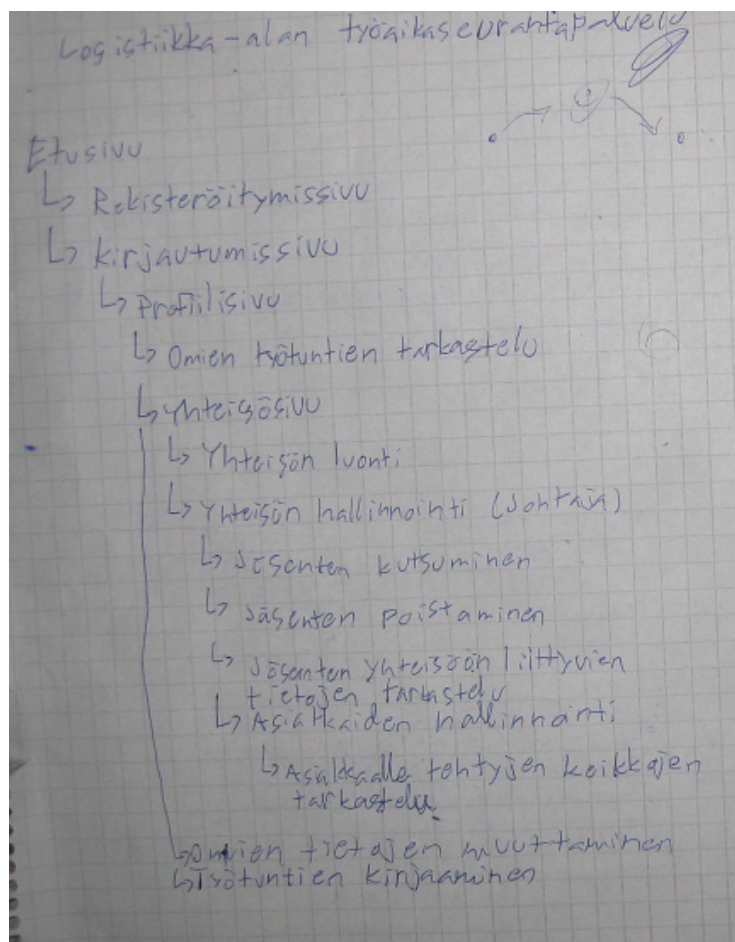 Logistiikka-alan työaikaseurantapalvelu
Etusivu
↳ Rekisteröitymissivu
↳ Kirjautumissivu
↳ Profiilisivu
↳ Omien työtuntien tarkastelu
↳ Yhteisösivu
↳ Yhteisön luonti
↳ Yhteisön hallinnointi (Johtaja)
↳ Jäsenten kutsuminen
↳ Jäsenten poistaminen
↳ Jäsenten yhteisöön liittyvien
tietojen tarkastelu
↳ Asiakkaiden hallinnointi
↳ Asiakkaalle tehtyjen keikkojen
tarkastelu
↳ Omien tietojen muuttaminen
↳ Työtuntien kirjaaminen